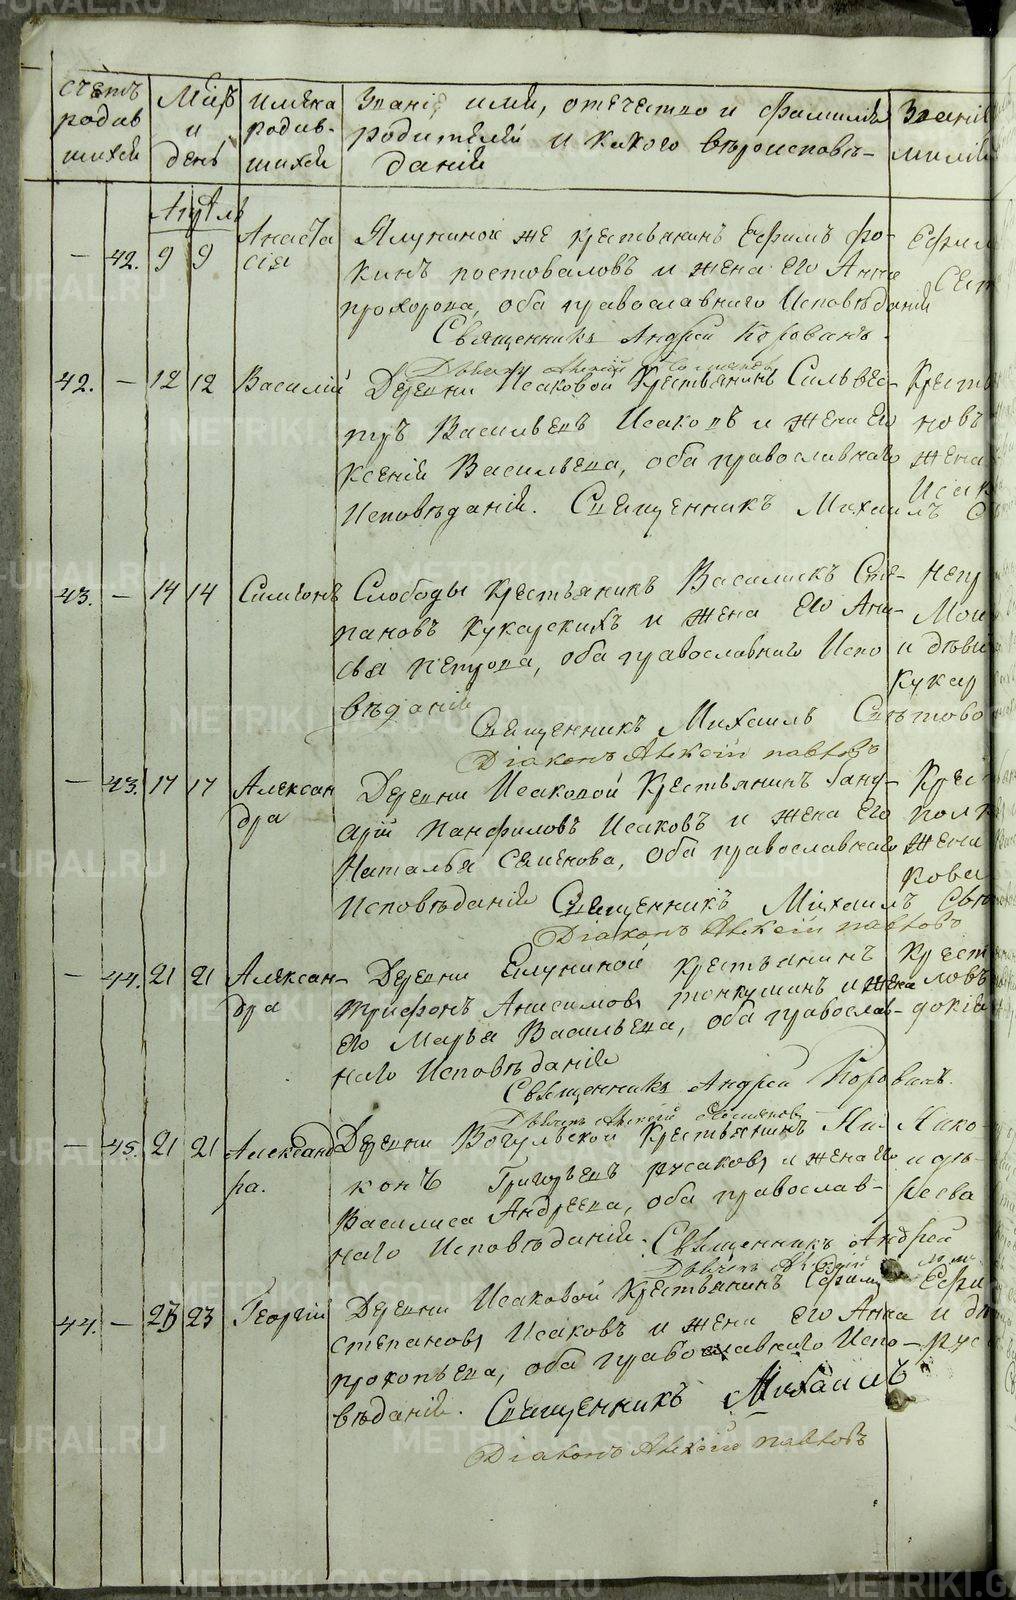 счетъ родив шихся
Мѣсъ и день
имена родив- шихся
Званіе имя, отечество и фамилія родителей и какого вѣроисповѣ- даній
Званіе милій
Апрѣль
— 42. 9 9 Анаста сія
Ялуниной же крестьянинъ Ефимъ Фо-
кинъ постоваловъ и жена его Анна
прохорова, оба православнаго Исповѣданій
Священникъ Андрей Корованъ.
Ефим
42. — 12 12 Василій
Деревни Исаковой Крестьянинъ Сильвес-
тръ Васильевъ Исаковъ и жена Его
Ксенія Васильева, оба православнаго
Исповѣданій. Священникъ Михаилъ С
Кресть
новъ
жена
Исак
43. — 14 14 Симіонъ
Слободы Крестьянинъ Василискъ Сте-
пановъ Кукарскихъ и жена Его Ани-
сья Петрова, оба православнаго Испо
вѣданій
Священникъ Михаилъ Свѣтово
Діаконъ Алексій павловъ
Непр
Мои
и дѣви
Кукар
— 43. 17 17 Алексан дра
Деревни Исаковой Крестьянинъ Іану-
арій Панфиловъ Исаковъ и жена Его
Наталья Семенова, оба православнаго
Исповѣданій Священникъ Михаилъ Свѣ
Діаконъ Алексій павловъ
Крес
полк
жена
кова
— 44. 21 21 Алексан- дра
Деревни Елуниной крестьянинъ
Трифонъ Анисимовъ тонкушинъ и жена
Его Марья Васильева, оба православ-
наго Исповѣданій
Священникъ Андрей Корованъ.
Крест
ловъ
докія
— 45. 21 21 Александ ра.
Деревни Вогульской Крестьянинъ Ни-
конъ Григорьевъ русаковъ и жена Его
Василиса Андреева, оба православ-
наго Исповѣданій. Священникъ Андрей
Яко-
реева
44. — 23 23 Георгій
Деревни Исаковой Крестьянинъ Ефимъ
степановъ Исаковъ и жена Его Анна
прокопьева, оба православнаго Испо-
вѣданій. Священникъ Михаилъ
Діаконъ Алексій павловъ
Ефи
METRIKI.GASO-URAL.RU